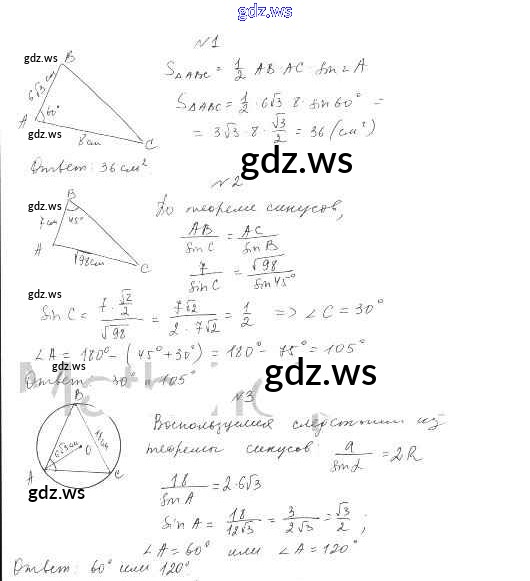 gdz.ws
№1
gdz.ws
B
6√3 см
A 60°
8 см
C
gdz.ws
S△ABC = 1/2 AB · AC · sin∠A
S△ABC = 1/2 · 6√3 · 8 · sin 60° =
= 3√3 · 8 · √3/2 = 36 (см²)
Ответ: 36 см².
gdz.ws
№2
gdz.ws
B
7 см 45°
A
√98 см
C
По теореме синусов,
AB/sin C = AC/sin B
7/sin C = √98/sin 45°
gdz.ws
sin C = (7 · √2/2)/√98 = 7√2/(2 · 7√2) = 1/2 => ∠C = 30°
∠A = 180° – (45° + 30°) = 180° – 75° = 105°
gdz.ws
Ответ 30° и 105°
№3
B
6√3 см
O
A
C
gdz.ws
Воспользуемся следствием из
теоремы синусов: a/sin α = 2R
18/sin A = 2 · 6√3
sin A = 18/12√3 = 3/2√3 = √3/2;
∠A = 60° или ∠A = 120°
Ответ: 60° или 120°
gdz.ws
gdz.ws